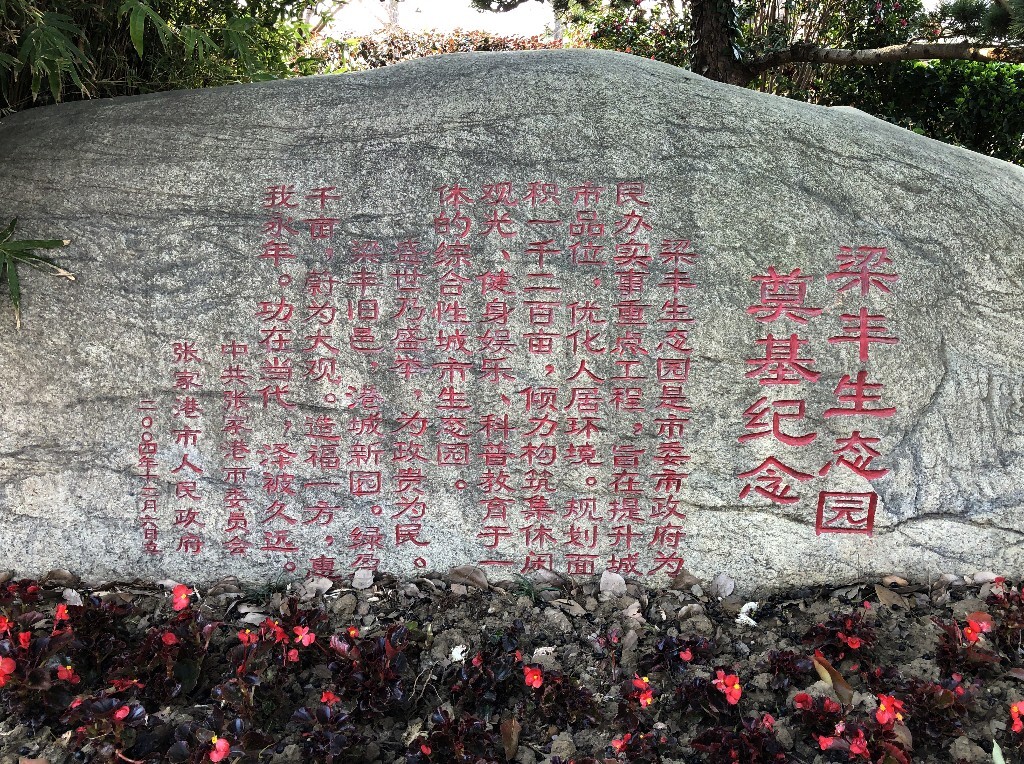 梁丰生态园
奠基纪念
梁丰生态园是市委市政府为
民办实事重点工程，旨在提升城
市品位，优化人居环境。规划面
积一千二百亩，倾力构筑集休闲
观光、健身娱乐、科普教育于一
体的综合性城市生态园。
盛世乃盛举，为政贵为民。
梁丰旧邑，港城新园。绿盈
千亩，蔚为大观。造福一方，惠
我永年。功在当代，泽被久远。
中共张家港市委员会
张家港市人民政府
二〇〇四年十二月六日立